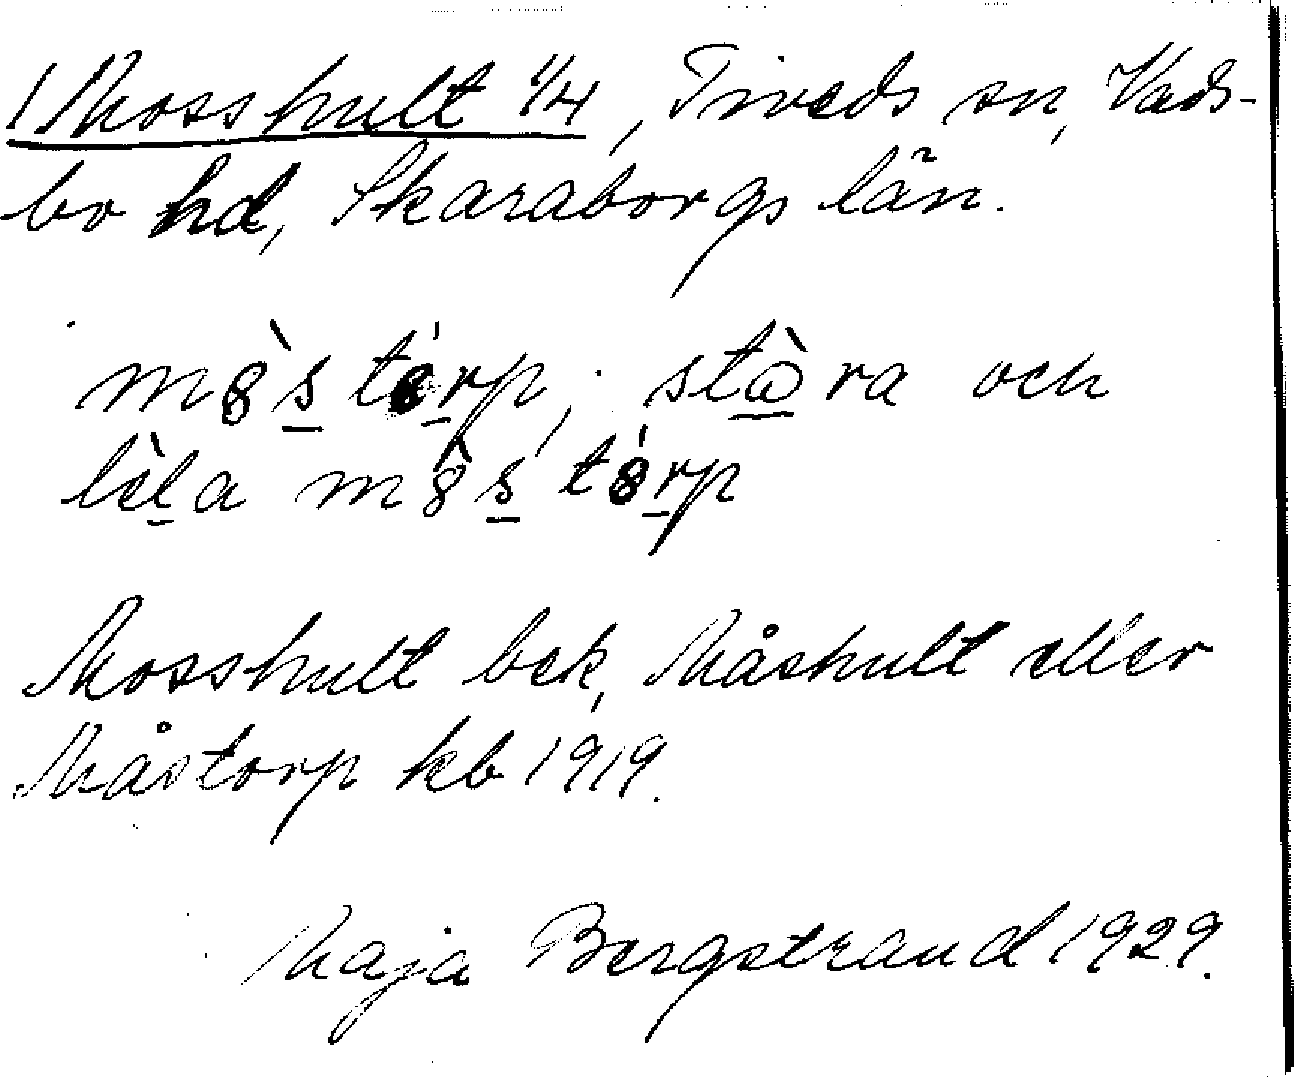 1 Mosshult 1/4, Tiveds sn, Vads-
bo hd, Skaraborgs län.
mȣ̀s̱ tȣ́ṟp, stɷ̀ra och
lìḻa mȣ̀s̱ tȣ́ṟp
Mosshult bek, Måshult eller
Måstorp kb 1919.
Maja Bergstrand 1929.